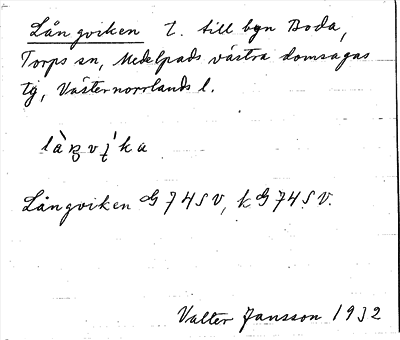 Långviken t. till byn Boda,
Torps sn, Medelpads västra domsagas
tg, Västernorrlands l.
Långviken G 74 SV, k G 74 SV.
Valter Jansson 1932